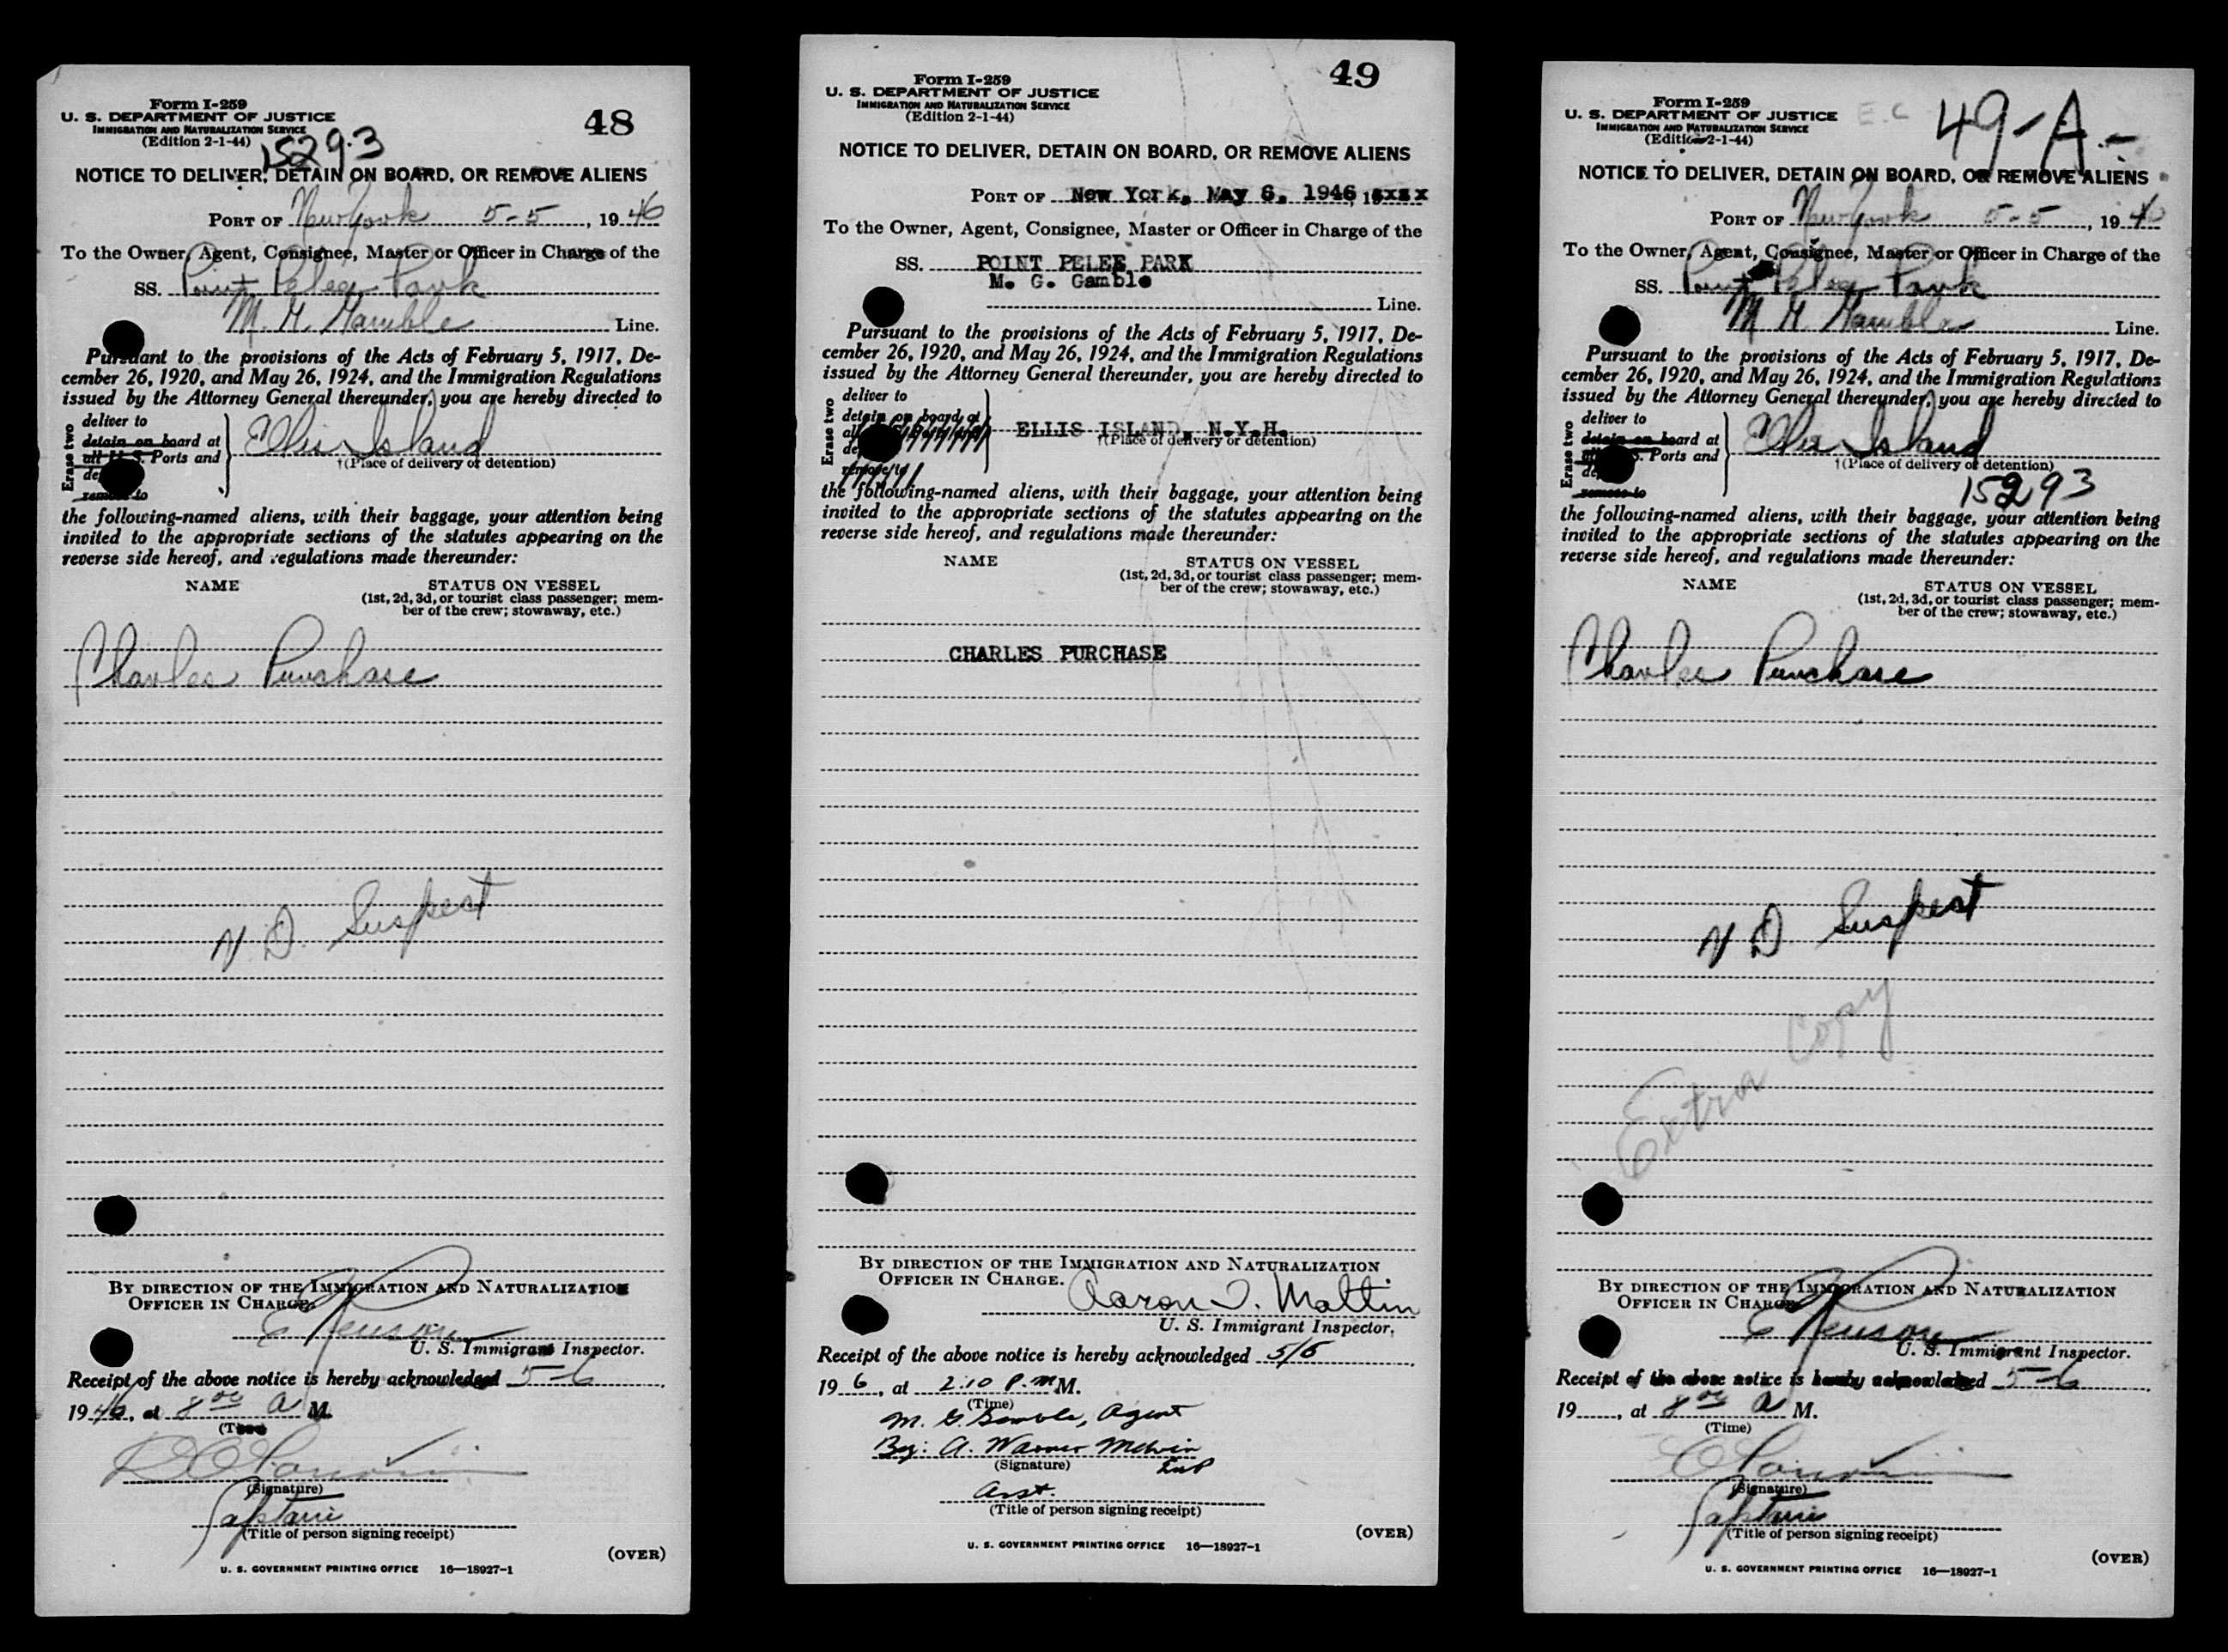 Form I-259
U. S. DEPARTMENT OF JUSTICE
IMMIGRATION AND NATURALIZATION SERVICE
(Edition 2-1-44)
48
15293
NOTICE TO DELIVER, DETAIN ON BOARD, OR REMOVE ALIENS
PORT OF New York 5-5, 1946
To the Owner, Agent, Consignee, Master or Officer in Charge of the
SS. Point Pelee Park
M. G. Gamble Line.
Pursuant to the provisions of the Acts of February 5, 1917, De-
cember 26, 1920, and May 26, 1924, and the Immigration Regulations
issued by the Attorney General thereunder, you are hereby directed to
Erase two
deliver to
detain on board at
all U. S. Ports and
remove to
Ellis Island
†(Place of delivery of detention)
the following-named aliens, with their baggage, your attention being
invited to the appropriate sections of the statutes appearing on the
reverse side hereof, and regulations made thereunder:
NAME STATUS ON VESSEL
(1st, 2d, 3d, or tourist class passenger; mem-
ber of the crew; stowaway, etc.)
Charles Purchase
V D. Suspect
BY DIRECTION OF THE IMMIGRATION AND NATURALIZATION
OFFICER IN CHARGE.
U. S. Immigrant Inspector.
Receipt of the above notice is hereby acknowledged 5-6
1946, at 8 00 a M.
(Time)
(Signature)
Captain
(Title of person signing receipt)
(OVER)
U. S. GOVERNMENT PRINTING OFFICE 16—18927-1
Form I-259
U. S. DEPARTMENT OF JUSTICE
IMMIGRATION AND NATURALIZATION SERVICE
(Edition 2-1-44)
49
NOTICE TO DELIVER, DETAIN ON BOARD, OR REMOVE ALIENS
PORT OF New York, May 6, 1946, 19xxx
To the Owner, Agent, Consignee, Master or Officer in Charge of the
SS. POINT PELEE PARK
M. G. Gamble
Line.
Pursuant to the provisions of the Acts of February 5, 1917, De-
cember 26, 1920, and May 26, 1924, and the Immigration Regulations
issued by the Attorney General thereunder, you are hereby directed to
Erase two
deliver to
detain on board at
remove to
ELLIS ISLAND, N.Y.H.
†(Place of delivery or detention)
the following-named aliens, with their baggage, your attention being
invited to the appropriate sections of the statutes appearing on the
reverse side hereof, and regulations made thereunder:
NAME STATUS ON VESSEL
(1st, 2d, 3d, or tourist class passenger; mem-
ber of the crew; stowaway, etc.)
CHARLES PURCHASE
BY DIRECTION OF THE IMMIGRATION AND NATURALIZATION
OFFICER IN CHARGE.
Aaron I. Maltin
U. S. Immigrant Inspector.
Receipt of the above notice is hereby acknowledged 5/6
19 6, at 2:10 P.M M.
(Time)
M. G. Gamble, Agent
By: A. Warner Melvin
(Signature)
Asst.
(Title of person signing receipt)
(OVER)
U. S. GOVERNMENT PRINTING OFFICE 16—18927-1
Form I-259
U. S. DEPARTMENT OF JUSTICE
IMMIGRATION AND NATURALIZATION SERVICE
(Edition 2-1-44)
E.C 49-A-
NOTICE TO DELIVER, DETAIN ON BOARD, OR REMOVE ALIENS
PORT OF New York 5-5, 1946
To the Owner, Agent, Consignee, Master or Officer in Charge of the
SS. Point Pelee Park
M G. Gamble Line.
Pursuant to the provisions of the Acts of February 5, 1917, De-
cember 26, 1920, and May 26, 1924, and the Immigration Regulations
issued by the Attorney General thereunder, you are hereby directed to
Erase two
deliver to
detain on board at
all U. S. Ports and
remove to
Ellis Island
†(Place of delivery of detention)
15293
the following-named aliens, with their baggage, your attention being
invited to the appropriate sections of the statutes appearing on the
reverse side hereof, and regulations made thereunder:
NAME STATUS ON VESSEL
(1st, 2d, 3d, or tourist class passenger; mem-
ber of the crew; stowaway, etc.)
Charles Purchase
V D Suspect
Extra Copy
BY DIRECTION OF THE IMMIGRATION AND NATURALIZATION
OFFICER IN CHARGE
U. S. Immigrant Inspector.
Receipt of the above notice is hereby acknowledged 5-6
19, at 8 00 a M.
(Time)
(Signature)
Captain
(Title of person signing receipt)
(OVER)
U. S. GOVERNMENT PRINTING OFFICE 16—18927-1